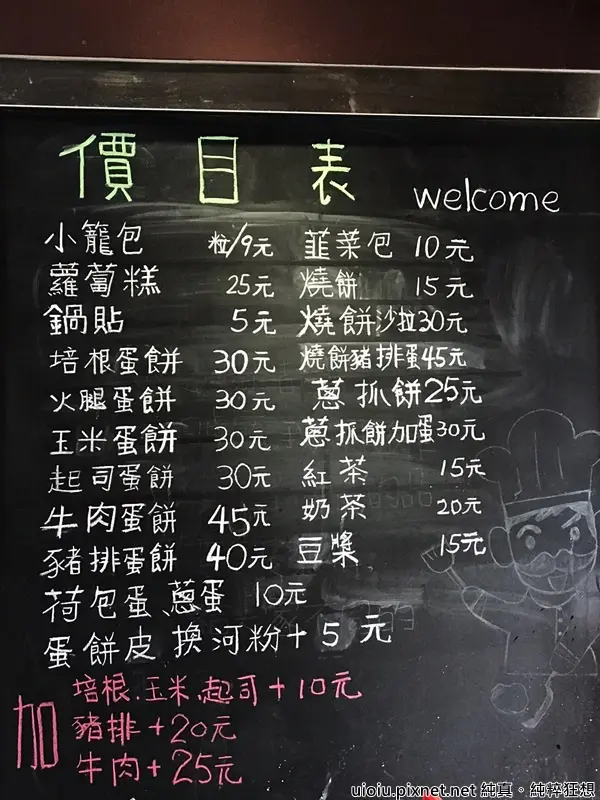 價目表 welcome
小籠包 粒/9元 韮菜包 10元
蘿蔔糕 25元 燒餅 15元
鍋貼 5元 燒餅沙拉30元
培根蛋餅 30元 燒餅豬排蛋45元
火腿蛋餅 30元 蔥抓餅25元
玉米蛋餅 30元 蔥抓餅加蛋30元
起司蛋餅 30元 紅茶 15元
牛肉蛋餅 45元 奶茶 20元
豬排蛋餅 40元 豆漿 15元
荷包蛋、蔥蛋 10元
蛋餅皮 換河粉+5元
加 培根.玉米.起司+10元
豬排+20元
牛肉+25元
uioiu.pixnet.net 純真。純粹狂想